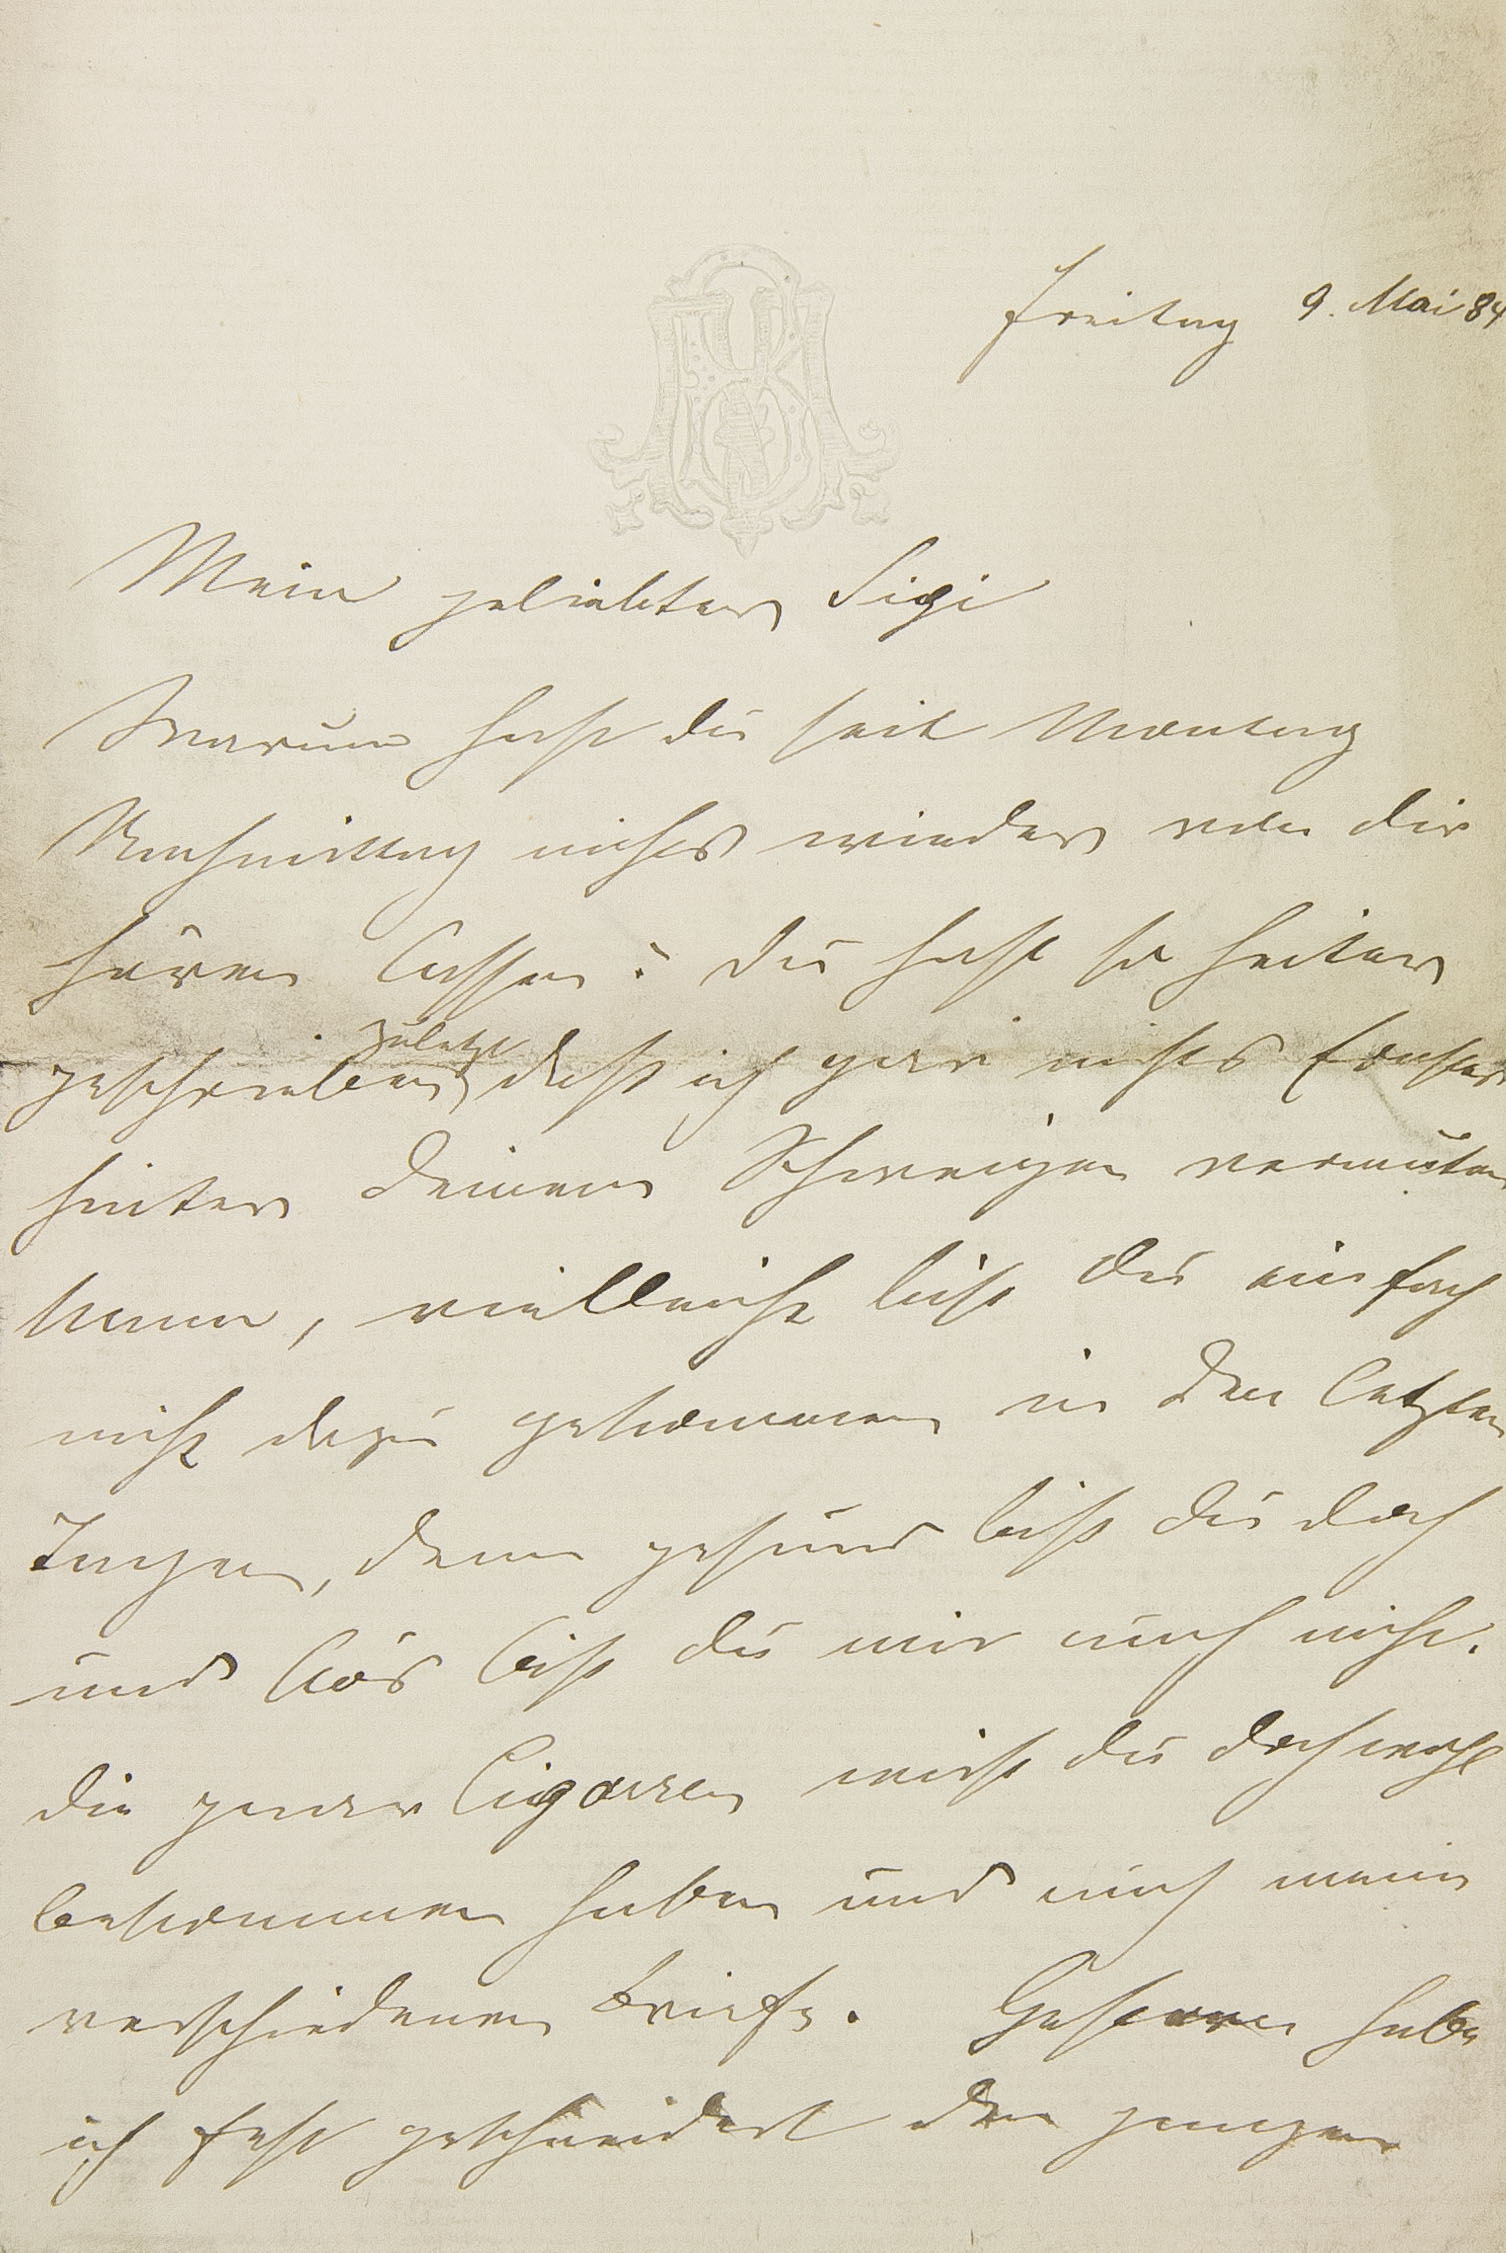 Freitag 9. Mai 84
Mein geliebter Sigi
Warum hast du seit Montag
Nachmittag nichts wieder von dir
hören lassen? du hast so heiter
zuletzt
geschrieben, daß ich gar nichts Ernstes
hinter deinem Schweigen vermuten
kann, vielleicht bist du einfach
nicht dazu gekommen in den letzten
Tagen, denn gesund bist du doch
und bös bist du mir auch nicht.
die paar Cigarren wirst du doch wohl
bekommen haben und auch meine
verschiedenen Briefe. Gestern habe
ich fest geschneidert den ganzen